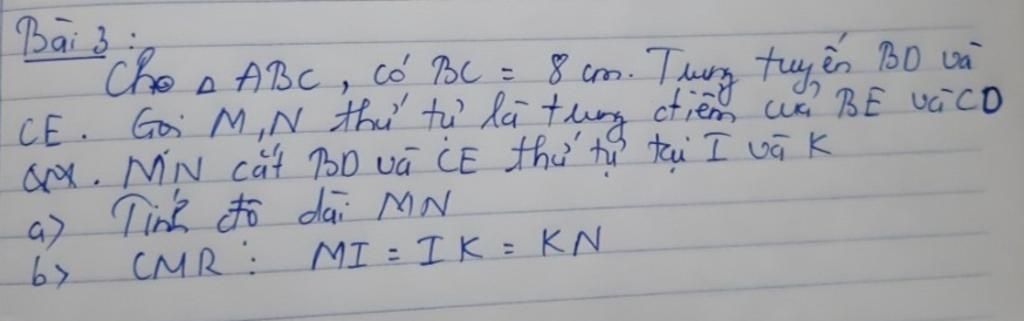 Bài 3:
Cho △ ABC, có BC = 8 cm. Trung tuyến BD và
CE. Gọi M,N thứ tự là trung điểm của BE và CD
MN cắt BD và CE thứ tự tại I và K
a> Tính độ dài MN
b> CMR: MI = IK = KN